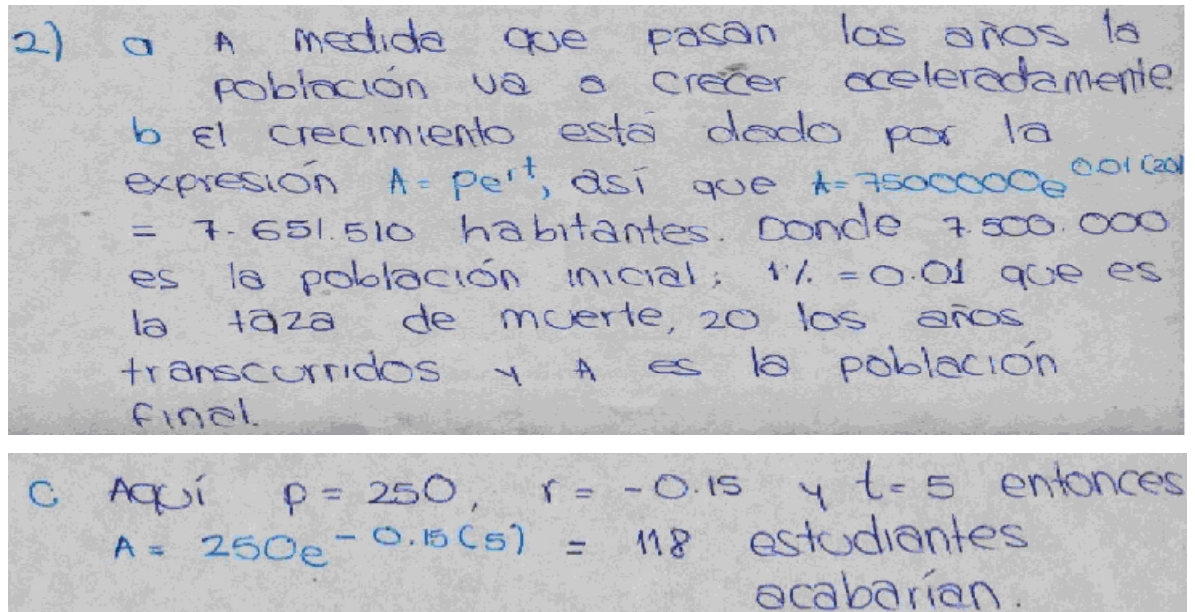 2) a A medida que pasan los años la
población va a crecer aceleradamente
b El crecimiento está dado por la
expresión A = Pe^rt, así que A = 7500000e^0.01(20)
= 7.651.510 habitantes. Donde 7.500.000
es la población inicial; 1% = 0.01 que es
la taza de muerte, 20 los años
transcurridos y A es la población
final.
c Aquí p = 250, r = -0.15 y t = 5 entonces
A = 250e^-0.15(5) = 118 estudiantes
acabarían.